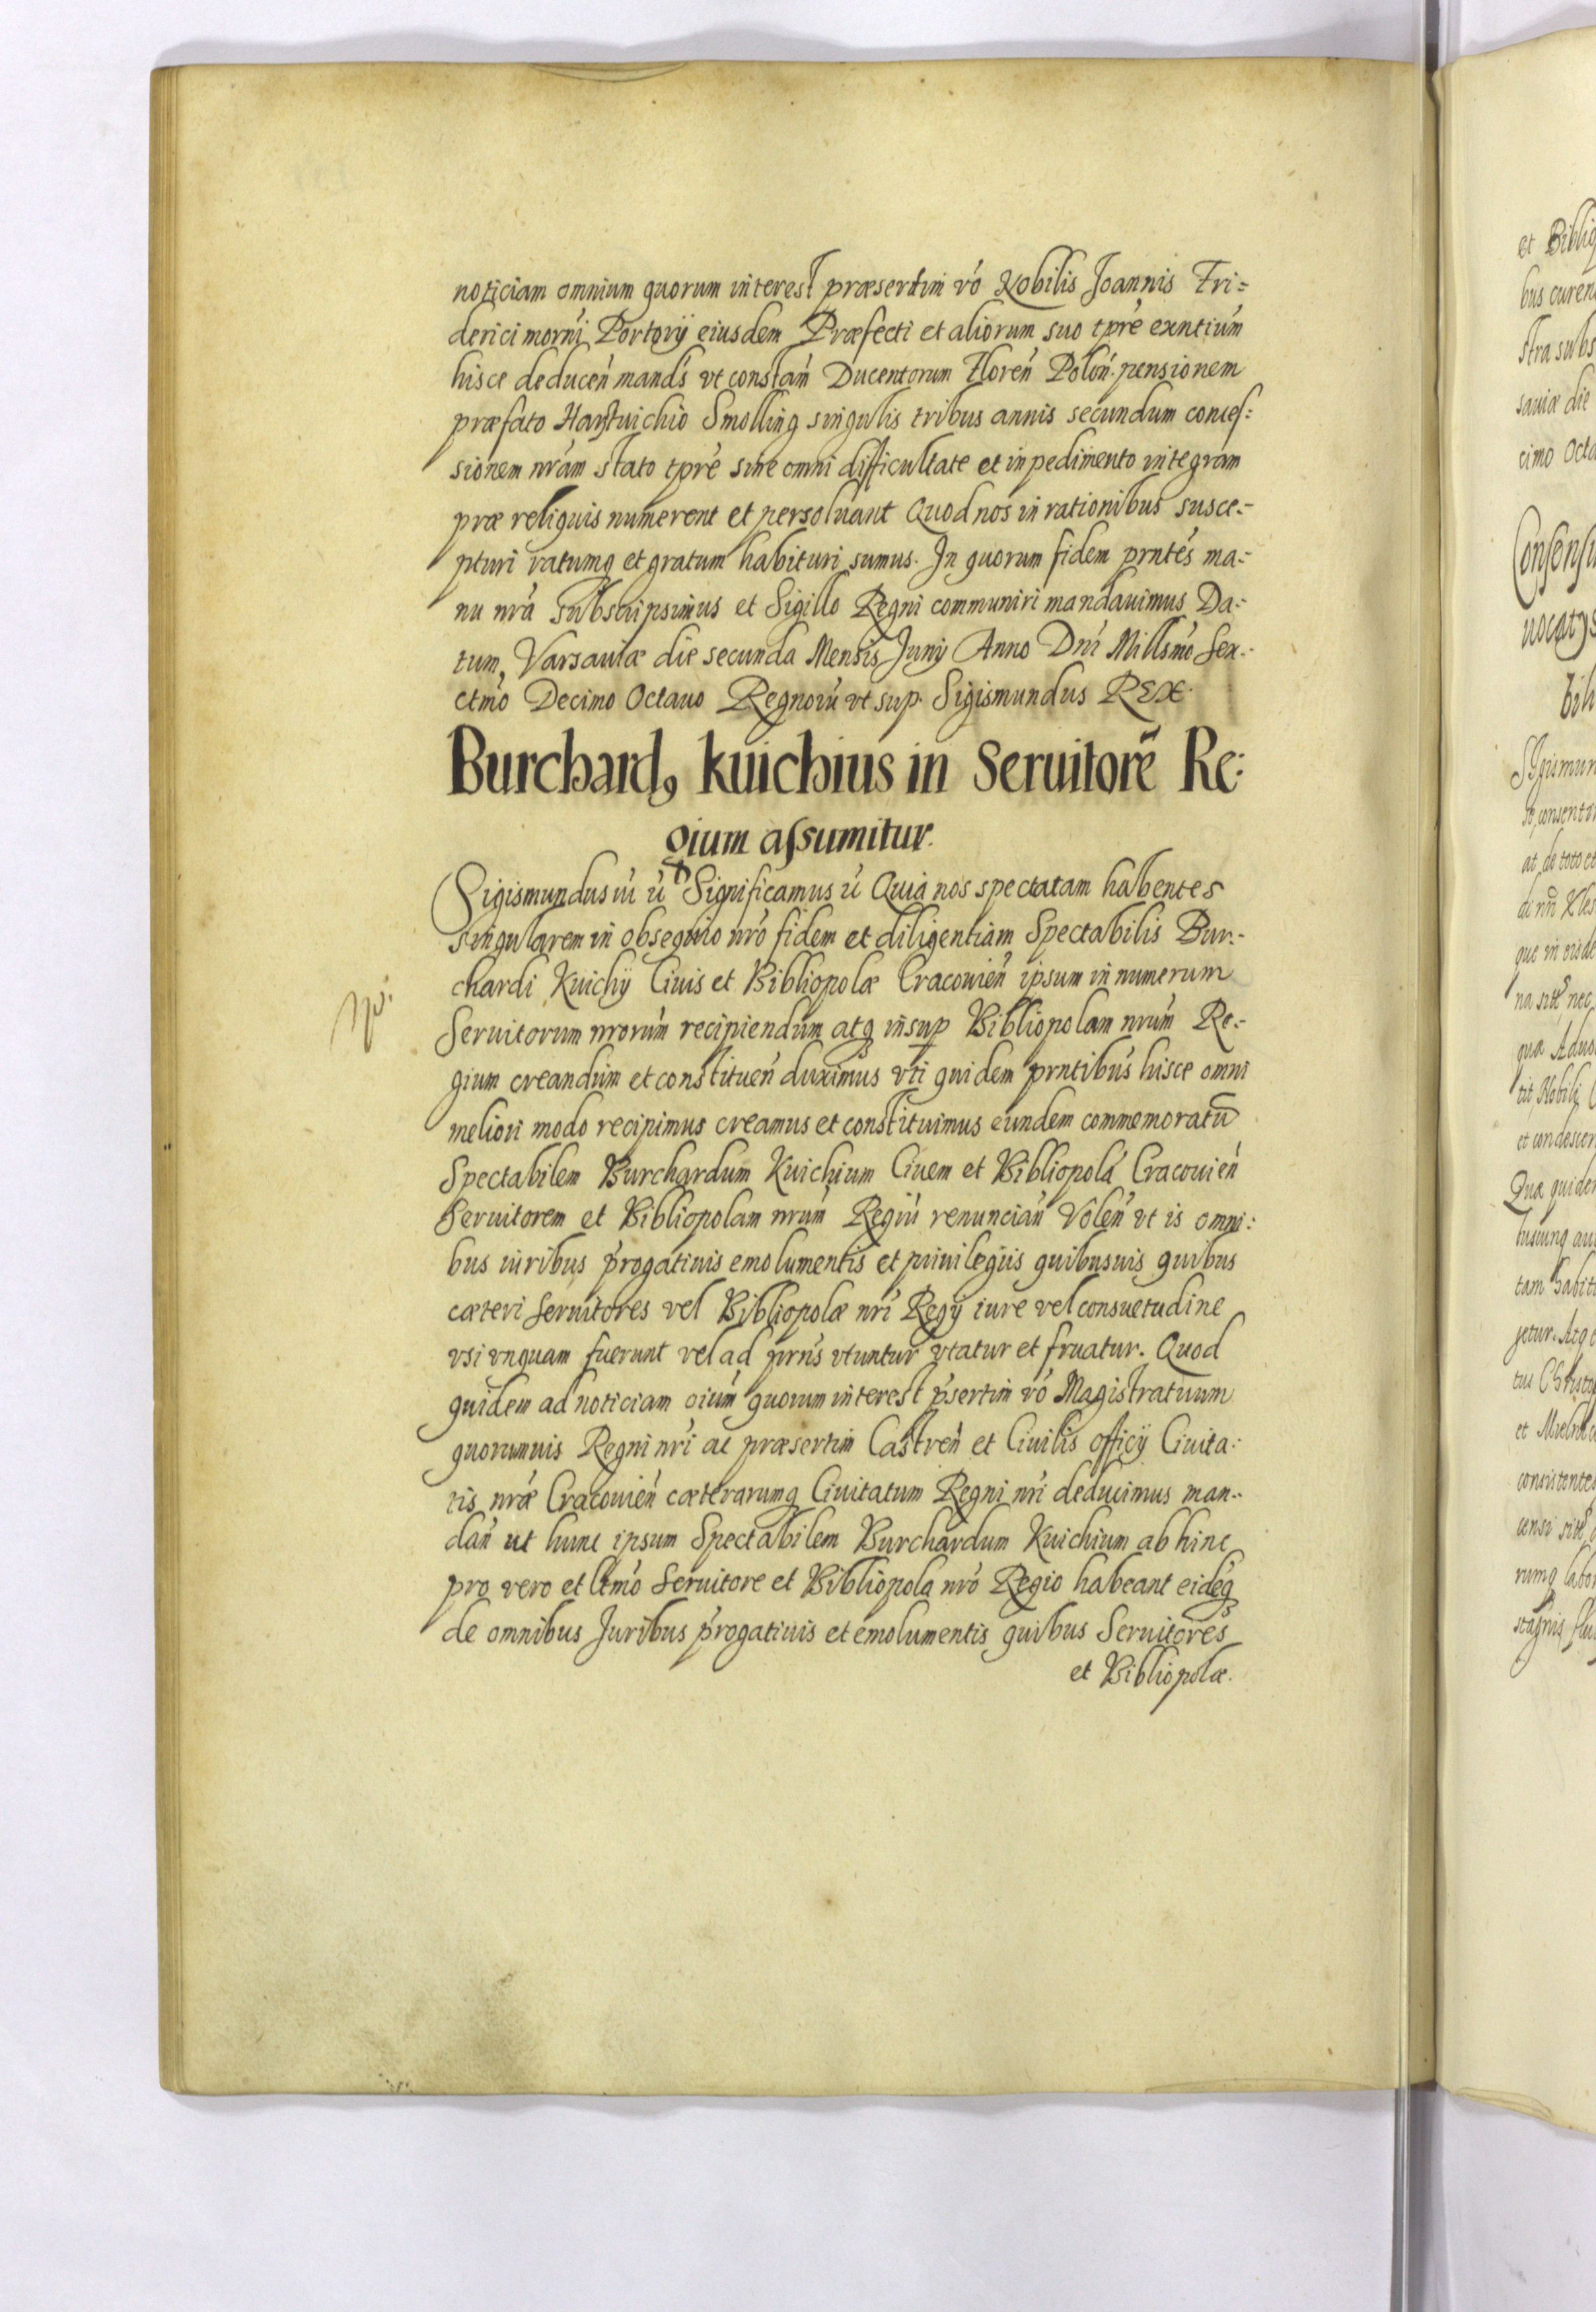 noticiam omnium quorum interest præsertim vo Nobilis Joannis Fri=
derici morni Portorij eiusdem Præfecti et aliorum suo tpre exntium
hisce deducen mands vt constan Ducentorum Floren Polon. pensionem
præfato Hartuichio Smolling singulis tribus annis secundum conces:
sionem nram stato tpre sine omni difficultate et inpedimento integram
præ reliquis numerent et persoluant Quod nos in rationibus susce:-
pturi ratumq et gratum habituri sumus. In quorum fidem prntes ma:-
nu nra subscripsimus et Sigillo Regni communiri mandauimus Da:-
tum, Varsauiæ die secunda Mensis Junij Anno Dni Millsmo Sex:-
ctmo Decimo Octauo Regnoru vt sup. Sigismundus REX.
Burchard9 kuichius in Seruitorē Re:
gium assumitur.
Sigismundus iii ū Significamus ū Quia nos spectatam habentes
singularem in obsequio nro fidem et diligentiam Spectabilis Bur:-
chardi Kuichij Ciuis et Bibliopolæ Cracouien ipsum in numerum
Seruitorum nrorum recipiendum atq insup Bibliopolam nrum Re:-
gium creandum et constituen duximus vti quidem prntibus hisce omni
meliori modo recipimus creamus et constituimus eundem commemoratū
Spectabilem Burchardum Kuichium Ciuem et Bibliopola Cracouien
Seruitorem et Bibliopolam nrum Regiu renuncian Volen vt is omni:
bus iuribus progatiuis emolumentis et priuilegiis quibusuis quibus
cæteri Seruitores vel Bibliopolæ nri Regij iure vel consuetudine
vsi vnquam fuerunt vel ad prns vtuntur vtatur et fruatur. Quod
quidem ad noticiam oium quorum interest psertim vo Magistratuum
quorumuis Regni nri ac præsertim Castren et Ciuilis officij Ciuita:
tis nræ Cracouien cæterarumq Ciuitatum Regni nri deducimus man:-
dan ut hunc ipsum Spectabilem Burchardum Kuichium ab hinc
pro vero et ltmo Seruitore et Bibliopola nro Regio habeant eidēq
de omnibus Juribus progatiuis et emolumentis quibus Seruitores
et Bibliopolæ.